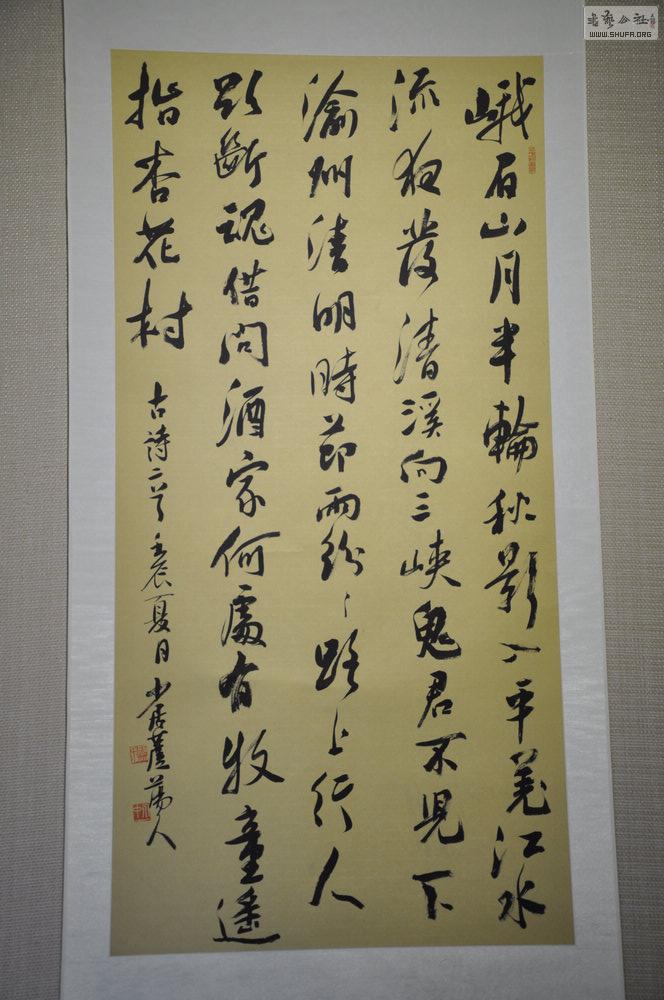 峨眉山月半輪秋影入平羌江水
流夜發清溪向三峽思君不見下
渝州清明時節雨紛〻路上行人
欲斷魂借問酒家何處有牧童遙
指杏花村
古詩二首壬辰夏日少居蘆蕩人
WWW.SHUFA.ORG